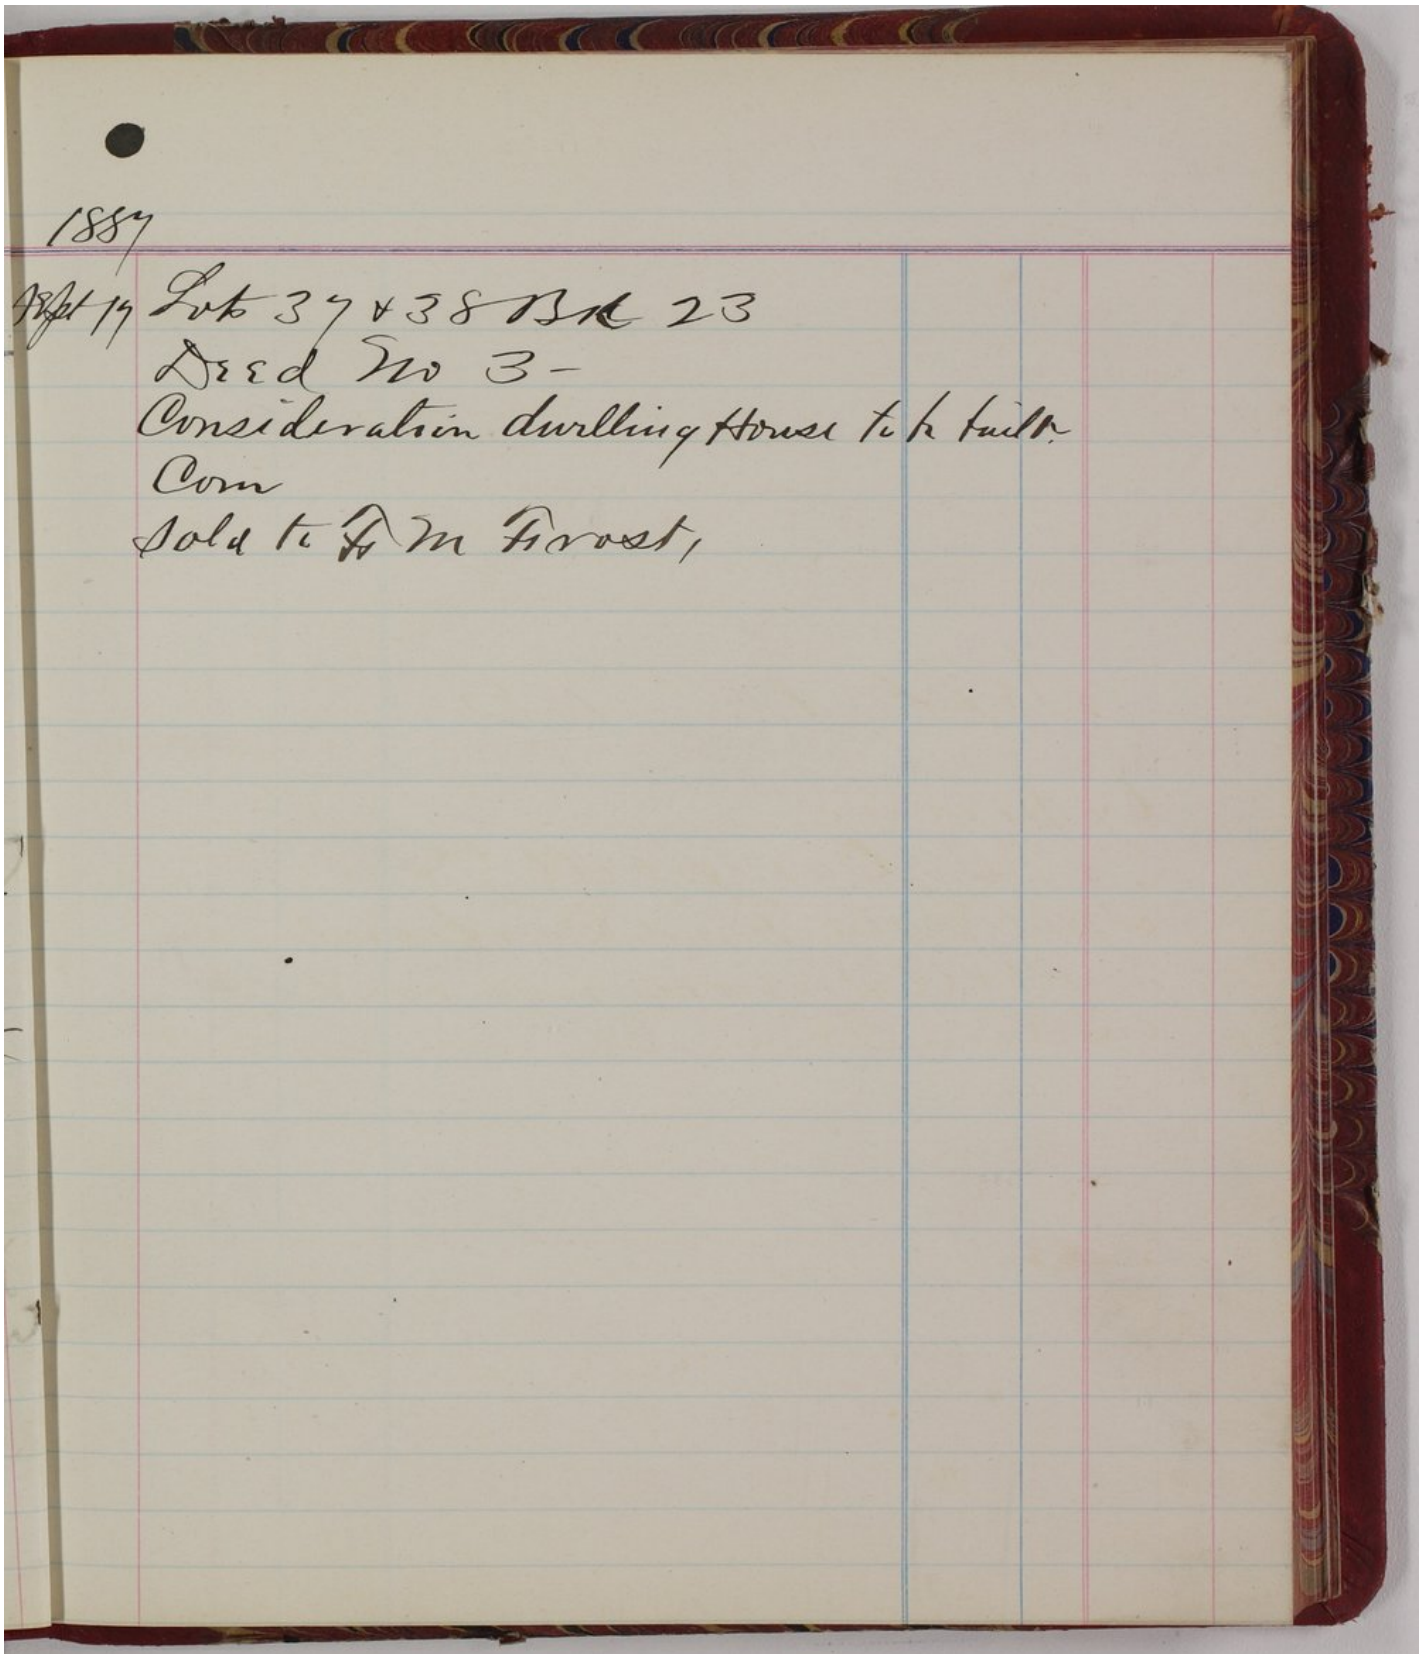 1887
Sept 17 Lots 37 & 38 Blk 23
Deed No 3-
Consideration dwelling House to be built
Com
sold to F M Frost,